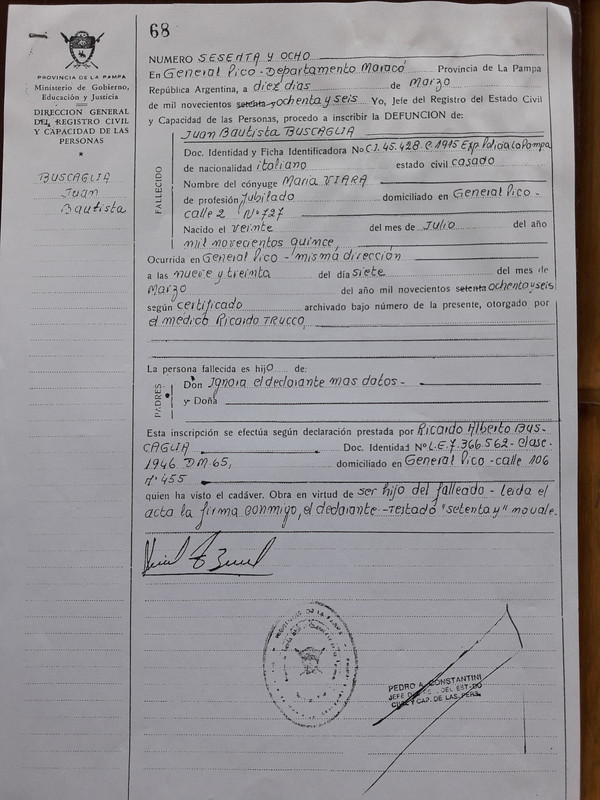 68
PROVINCIA DE LA PAMPA
Ministerio de Gobierno,
Educación y Justicia
DIRECCION GENERAL
DEL REGISTRO CIVIL
Y CAPACIDAD DE LAS
PERSONAS
BUSCAGLIA
Juan
Bautista
NUMERO SESENTA Y OCHO
En General Pico - Departamento Maracó Provincia de La Pampa
República Argentina, a diez días de Marzo
de mil novecientos setenta y ochenta y seis Yo, Jefe del Registro del Estado Civil
y Capacidad de las Personas, procedo a inscribir la DEFUNCION de:
Juan Bautista BUSCAGLIA
FALLECIDO
Doc. Identidad y Ficha Identificadora No C.I. 45.428. C. 1915 Exp. Policia La Pampa
de nacionalidad italiano estado civil casado
Nombre del cónyuge Maria VIARA
de profesión Jubilado domiciliado en General Pico -
calle 2 Nº 727
Nacido el veinte del mes de Julio del año
mil novecientos quince,
Ocurrida en General Pico - misma dirección
a las nueve y treinta del día siete del mes de
Marzo del año mil novecientos setenta ochenta y seis
según certificado archivado bajo número de la presente, otorgado por
el medico Ricardo TRUCCO,
La persona fallecida es hijo de:
PADRES
Don Ignora el declarante mas datos -
y Doña
Esta inscripción se efectúa según declaración prestada por Ricardo Alberto BUS-
CAGLIA Doc. Identidad Nº L.E. 7.366.562 - clase -
1946 D.M 65, domiciliado en General Pico - calle 106
Nº 455
quien ha visto el cadáver. Obra en virtud de ser hijo del falleado - Leida el
acta la firma conmigo, el declarante - Testado "setenta y" no vale.
PEDRO A. CONSTANTINI
JEFE DEL EST DO
CIVIL Y CAP. DE LAS PERS.